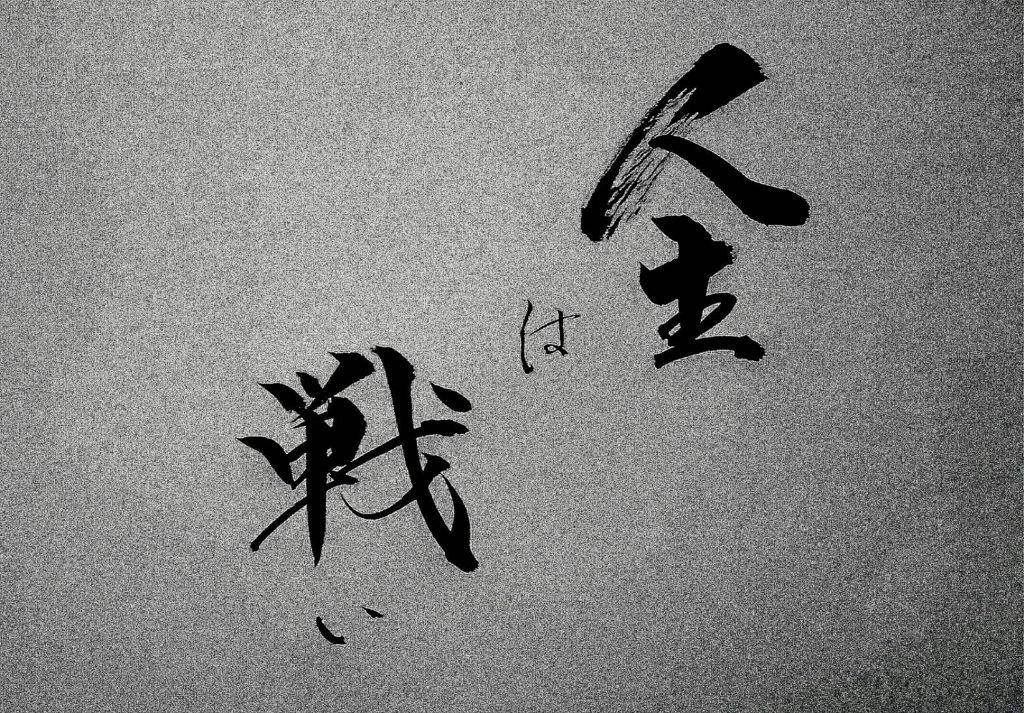 人生は戦い